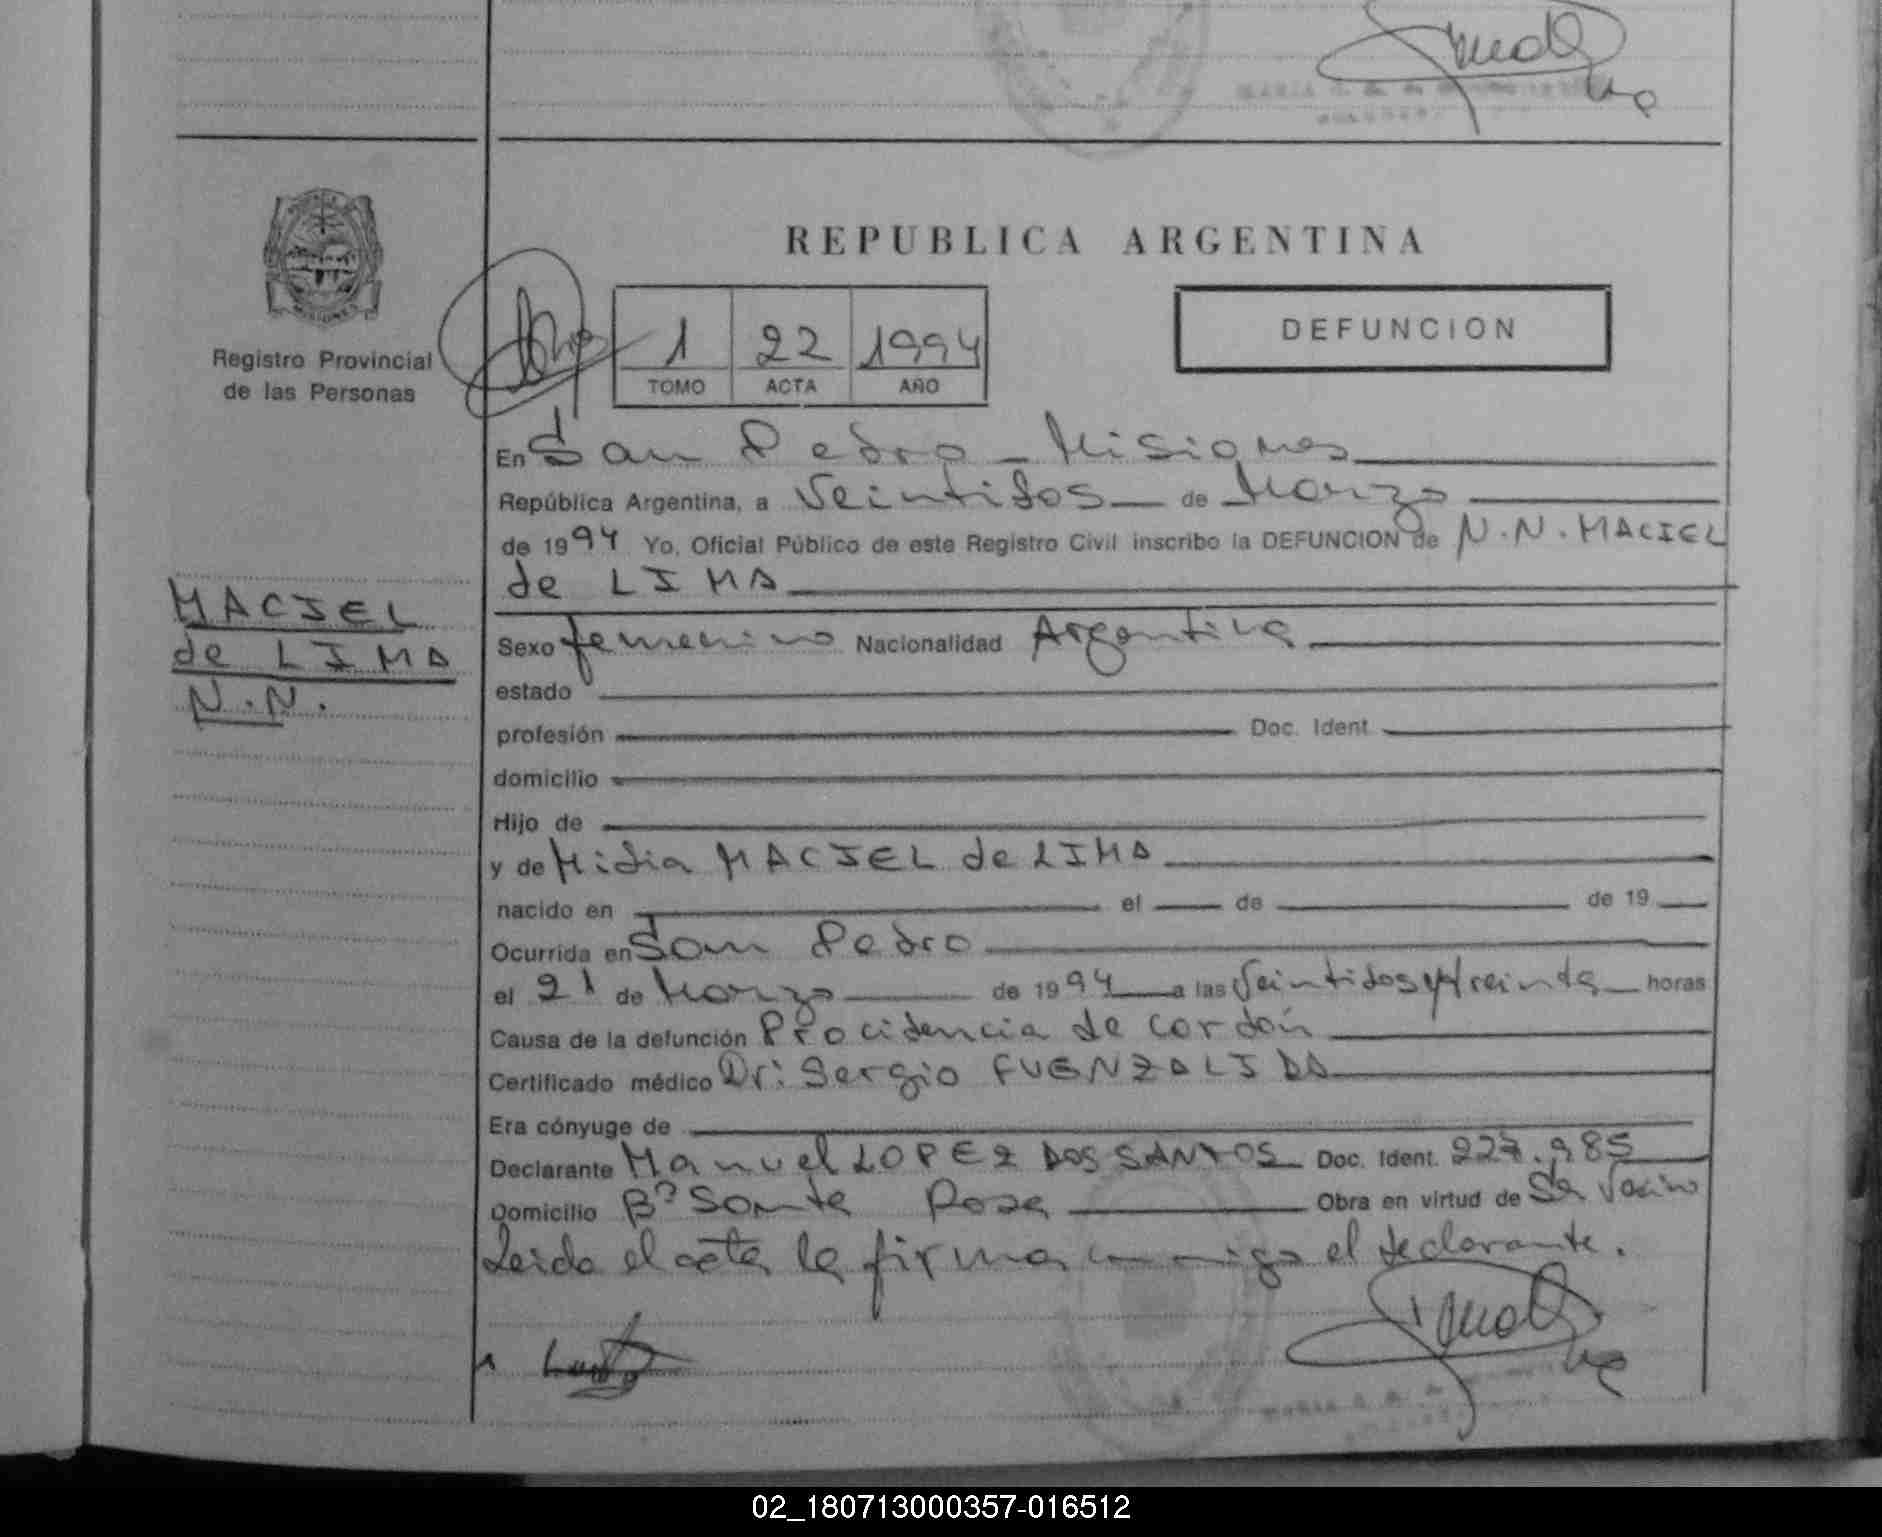 REPUBLICA ARGENTINA
Registro Provincial
de las Personas
1 22 1994
TOMO ACTA AÑO
DEFUNCION
En San Pedro - Misiones
República Argentina, a Veintidos de Marzo
de 1994 Yo, Oficial Público de este Registro Civil inscribo la DEFUNCION de N.N. MACIEL
de LIMA
MACIEL
de LIMA
N.N.
Sexo femenino Nacionalidad Argentina
estado
profesión Doc. Ident.
domicilio
Hijo de
y de Midia MACIEL de LIMA
nacido en el de de 19
Ocurrida en San Pedro
el 21 de Marzo de 1994 a las Veintidos y treinta horas
Causa de la defunción Procidencia de cordón
Certificado médico Dr: Sergio FUENZALIDA
Era cónyuge de
Declarante Manuel LOPEZ DOS SANTOS Doc. Ident. 227.985
Domicilio Bº Santa Rosa Obra en virtud de Ser Vecino
Leida el acta la firma conmigo el declarante.
02_180713000357-016512